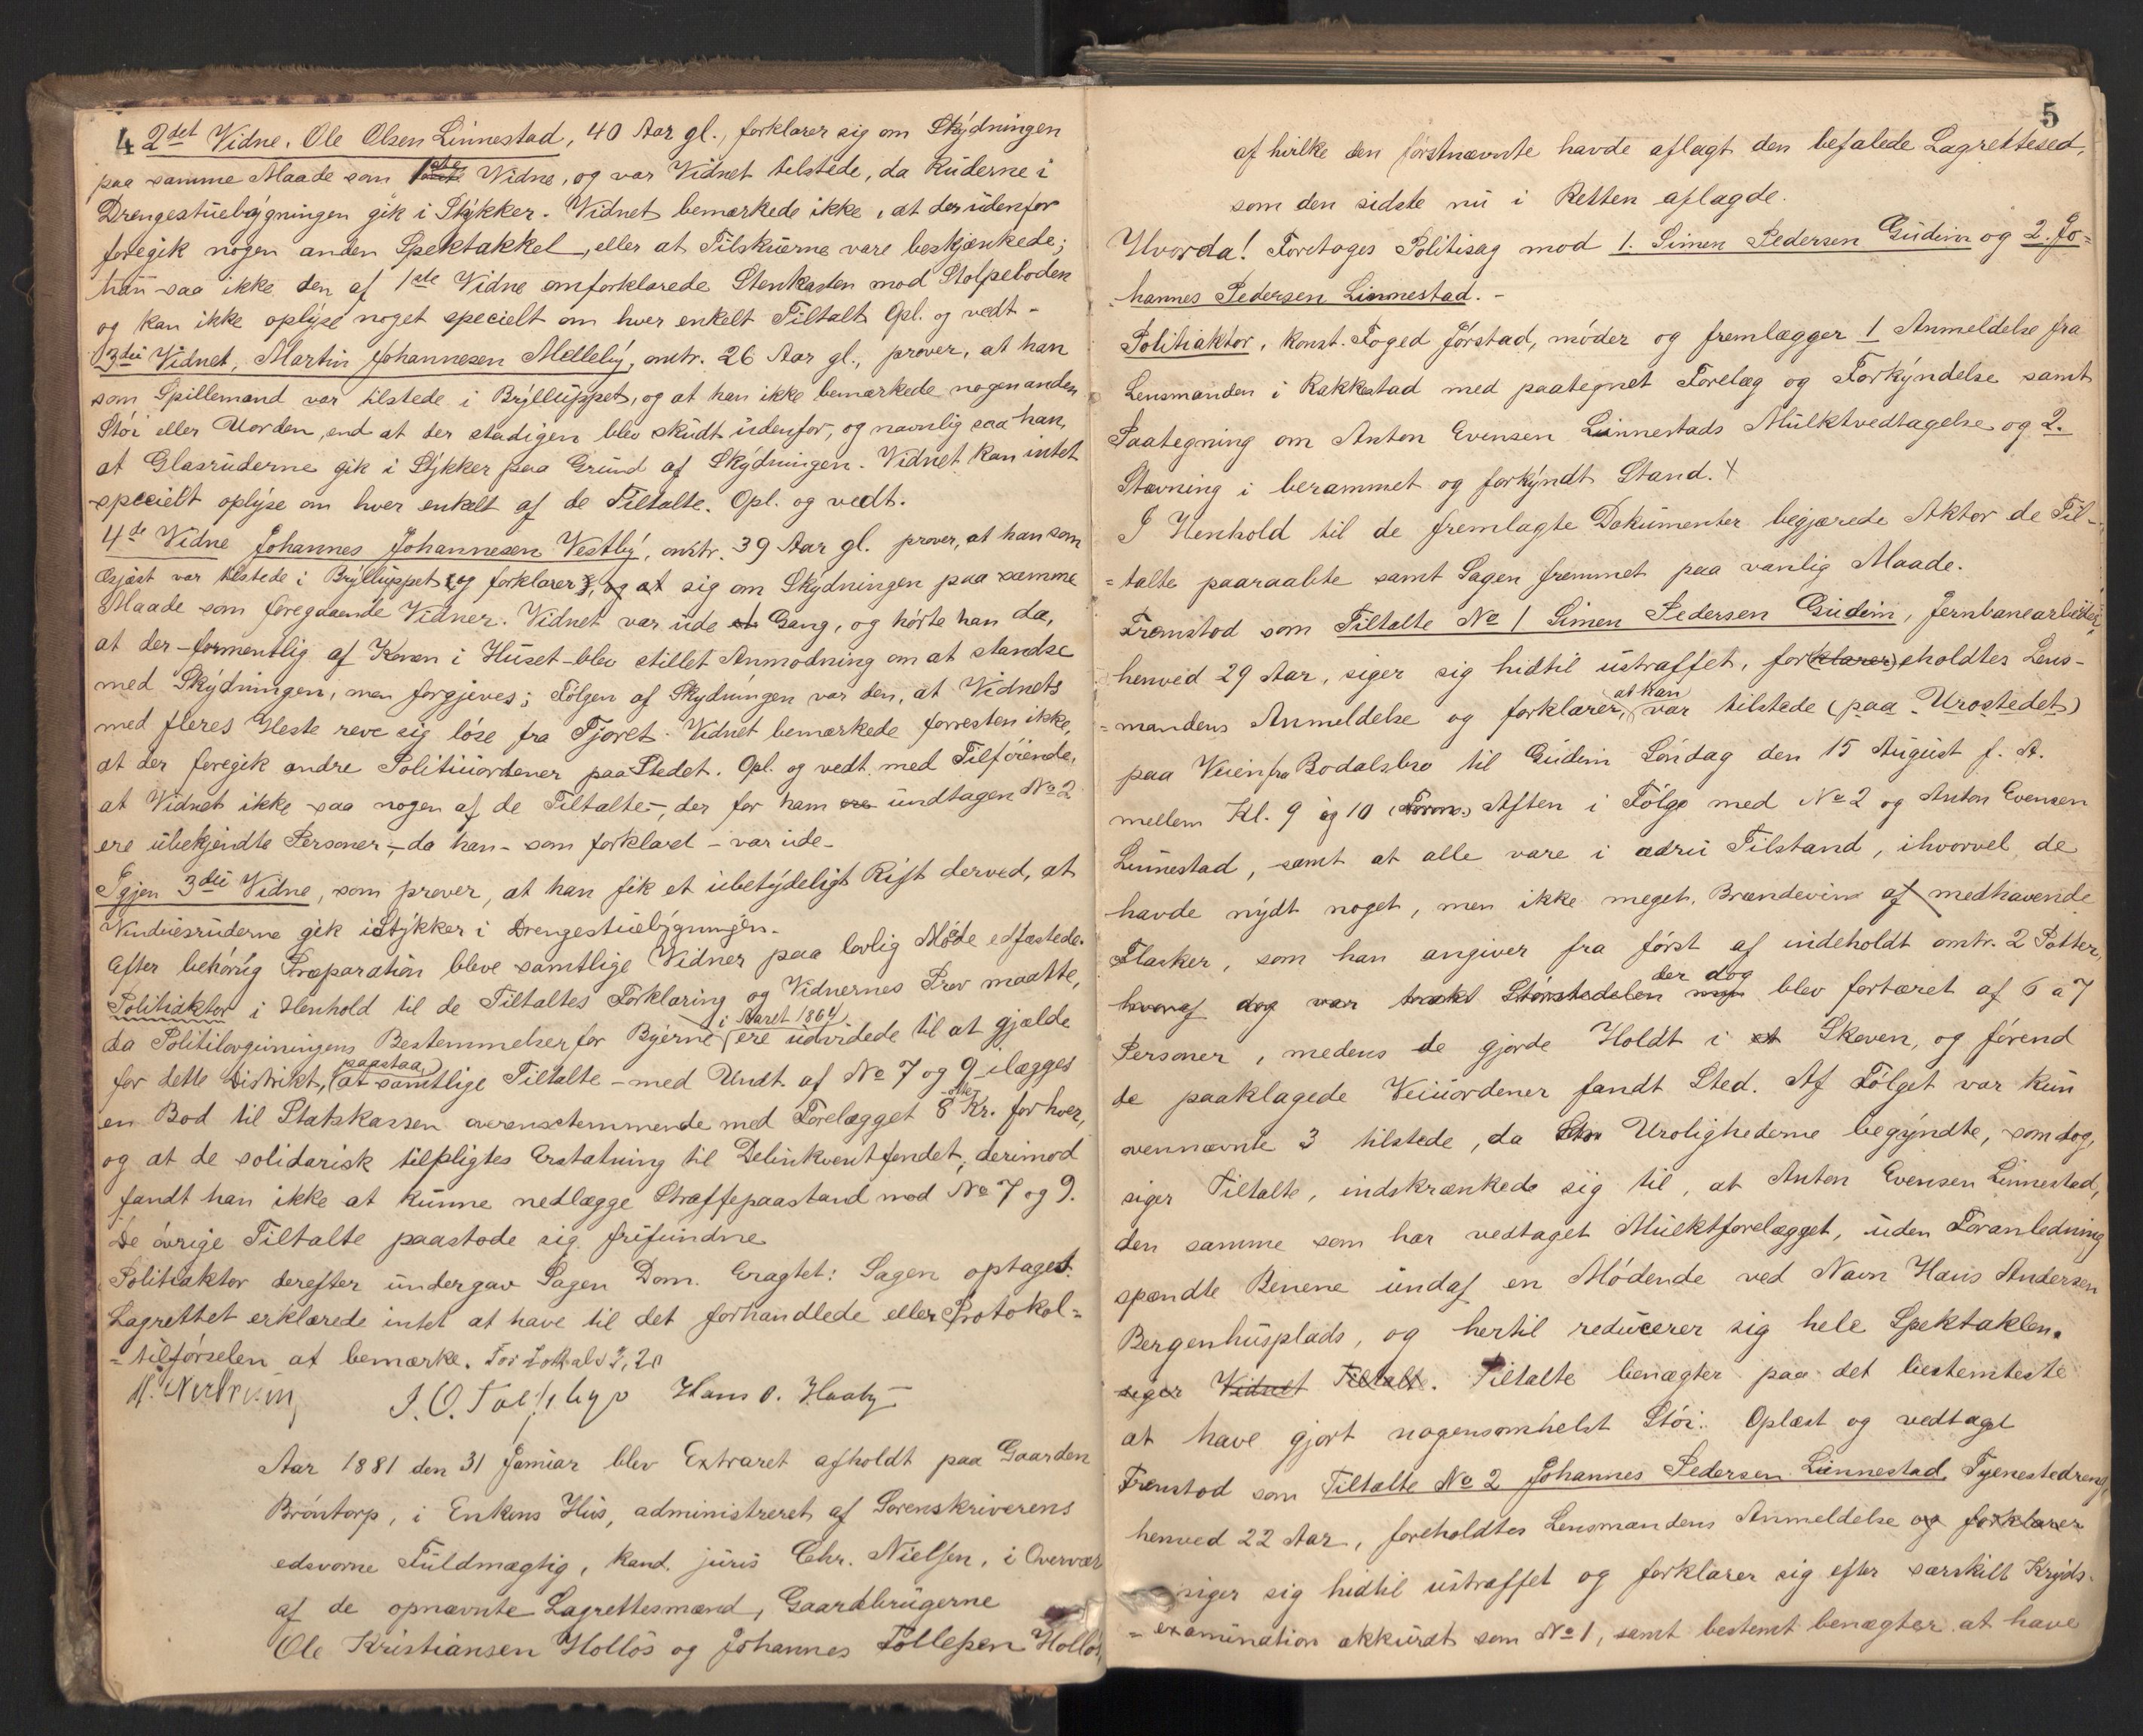 4
2det Vidne. Ole Olsen Linnestad, 40 Aar gl., forklarer sig om Skydningen
paa samme Maade som 1ste Vidne, og var Vidnet tilstede, da Ruderne i
Drengestuebygningen gik i Stykker. Vidnet bemærkede ikke, at der udenfor
foregik nogen anden Spektakkel, eller at Tilskuerne vare beskjænkede;
han saa ikke den af 1ste Vidne omforklarede Stenkasten mod Stolpeboden
og kan ikke oplyse noget specielt om hver enkelt Tiltalt. Opl. og vedt-
3die Vidnet, Martin Johannesen Melleby, omtr. 26 Aar gl., prover, at han
som Spillemand var tilstede i Brylluppet, og at han ikke bemærkede nogen anden
Stöi eller Uorden, end at der stadigen blev skudt udenfor, og navnlig saa han,
at Glasruderne gik i Stykker paa Grund af Skydningen. Vidnet kan intet
specielt oplyse om hver enkelt af de Tiltalte. Opl. og vedt.
4de Vidne Johannes Johannesen Vestby, omtr. 39 Aar gl. prover, at han som
Gjæst var tilstede i Brylluppet (og forklarer), og at sig om Skydningen paa samme
Maade som foregaaende Vidner. Vidnet var ude et Gang, og hörte han da,
at der - formentlig af Konen i Huset - blev stillet Anmodning om at standse
med Skydningen, men forgjeves; Fölgen af Skydningen var den, at Vidnets
med fleres Heste reve sig löse fra Tjoret. Vidnet bemærkede forresten ikke,
at der foregik andre Politiuordener paa Stedet. Opl. og vedt. med Tilföiende,
at Vidnet ikke saa nogen af de Tiltalte -, der for ham ere undtagen No 2
ere ubekjendte Personer -, da han - som forklaret - var ude -
Igjen 3die Vidne, som prover, at han fik et ubetydeligt Rift derved, at
Vinduesruderne gik i Stykker i Drengestuebygningen.
Efter behörig Præparation bleve samtlige Vidner paa lovlig Maade edfæstede.
Politiaktor i Henhold til de Tiltaltes Forklaring og Vidnernes Prov maatte,
da Politilovgivningens Bestemmelser for Byerne i Aaret 1864 ere udvidede til at gjælde
for dette Distrikt, (paastaa) at samtlige Tiltalte - med Undt. af No 7 og 9 - ilægges
en Bod til Statskassen overensstemmende med Forelægget 8 - otte - Kr. for hver,
og at de solidarisk tilpligtes Erstatning til Delinkventfondet; derimod
fandt han ikke at kunne nedlægge Straffepaastand mod No 7 og 9.
De övrige Tiltalte paastode sig frifundne
Politiaktor derefter undergav Sagen Dom. Eragtet: Sagen optaget.
Lagrettet erklærede intet at have til det forhandlede eller Protokol=
=tilförselen at bemærke.
Hans O. Haaby
Aar 1881 den 31 Januar blev Extraret afholdt paa Gaarden
Bröntorp, i Enkens Hus, administreret af Sorenskriverens
edsvorne Fuldmægtig, kand. juris Chr. Nielsen, i Overvær
af de opnævnte Lagrettesmænd, Gaardbrugerne
Ole Kristiansen Hollös og Johannes Tollefsen Hollös,
5
af hvilke den förstnævnte havde aflagt den befalede Lagrettesed,
som den sidste nu i Retten aflagde.
Hvorda! Foretoges Politisag mod 1. Simen Pedersen Gudim og 2. Jo=
hannes Pedersen Linnestad. -
Politiaktor, konst. Foged Jörstad, möder og fremlægger 1 Anmeldelse fra
Lensmanden i Rakkestad med paategnet Forelæg og Forkyndelse samt
Paategning om Anton Evensen Linnestads Mulktvedtagelse og 2.
Stævning i berammet og forkyndt Stand. +
I Henhold til de fremlagte Dokumenter begjærede Aktor de Til-
=talte paaraabte samt Sagen fremmet paa vanlig Maade.
Fremstod som Tiltalte No 1 Simen Pedersen Gudim, Jernbanearbeider,
henved 29 Aar, siger sig hidtil ustraffet, for(klarer)eholdtes Lens-
=mandens Anmeldelse og forklarer, at han var tilstede (paa Urostedet)
paa Veien fra Bodalsbro til Gudim Söndag den 15 August f. A.
mellem Kl. 9 og 10 (Form.) Aften i Fölge med No 2 og Anton Evensen
Linnestad, samt at alle vare i ædru Tilstand, ihvorvel de
havde nydt noget, men ikke meget, Brændevin af medhavende
Flasker, som han angiver fra först af indeholdt omtr. 2 Potter,
hvoraf dog var Störstedelen der dog blev fortæret af 6 a 7
Personer, medens de gjorde Holdt i et Skoven, og förend
de paaklagede Veiuordener fandt Sted. Af Fölget var kun
ovennævnte 3 tilstede, da Urolighederne begyndte, som dog,
siger Tiltalte, indskrænkede sig til, at Anton Evensen Linnestad,
den samme som har vedtaget Mulktforelægget, uden Foranledning
spændte Benene undaf en Mödende ved Navn Hans Andersen
Bergenhusplads, og hertil reducerer sig hele Spektaklen.
siger Vidnet Tiltalte. Tiltalte benægter paa det bestemteste
at have gjort nogensomhelst Stöi. Oplæst og vedtaget
Fremstod som Tiltalte No 2 Johannes Pedersen Linnestad, Tjenestedreng,
henved 22 Aar, foreholdtes Lensmandens Anmeldelse og forklarer
siger sig hidtil ustraffet og forklarer sig efter særskilt Kryds-
=examination akkurat som No 1, samt bestemt benægter at have